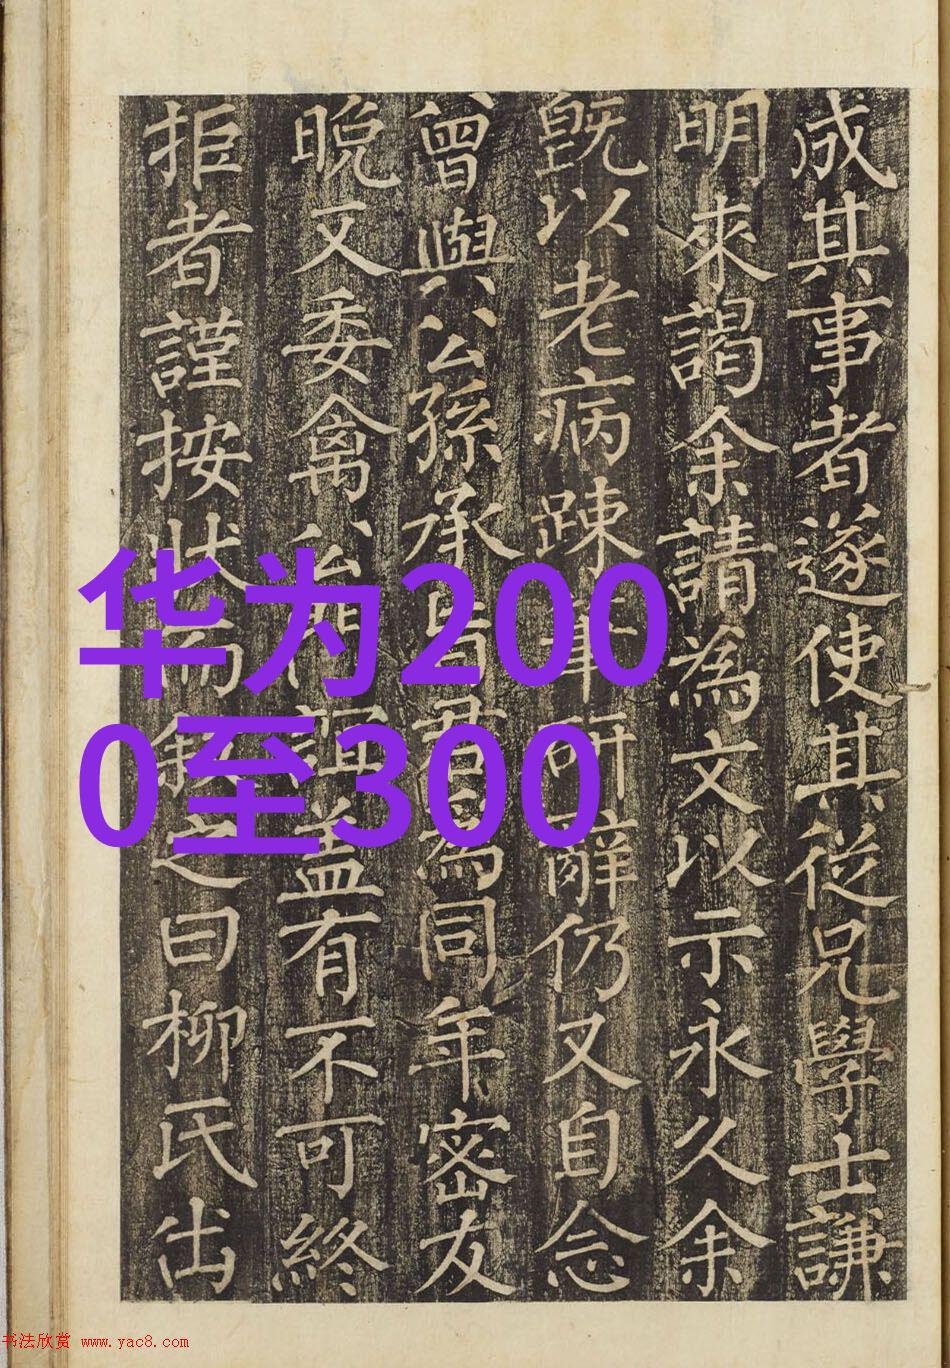 成其事者遂使其從兄學士謙
明來謁余請為文以示永久余
既以老病踈筆研辭仍又自念
曾與公孫承旨君為同年密友
晚又委禽公門誼盖有不可終
拒者謹按狀而叙之曰柳氏出
华为200
0至300
书法欣赏 www.yac8.com